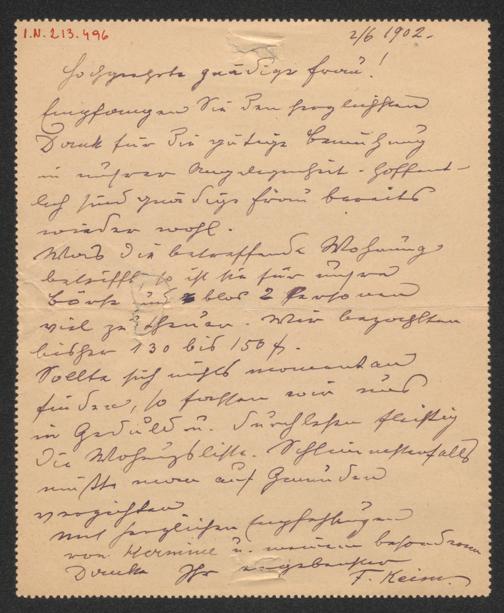 I.N. 213.496
2/6 1902.
Hochgeehrte gnädige Frau!
Empfangen Sie den herzlichsten
Dank für die gütige Bemühung
in unserer Angelegenheit. Hoffent-
lich sind gnädige Frau bereits
wieder wohl.
Was die betreffende Wohnung
betrifft so ist sie für unsre
Börse und blos 2 Personen
viel zu theuer. Wir bezahlten
bisher 130 bis 150 f.
Sollte sich nichts momentan
finden, so fassen wir uns
in Geduld u. durchlesen fleißig
die Wohnungsliste. Schlimmstenfalls
müßte man auf Gmunden
verzichten
Mit herzlichen Empfehlungen
von Hermine u. meinem besondern
Danke Ihr ergebenster
F. Keim.